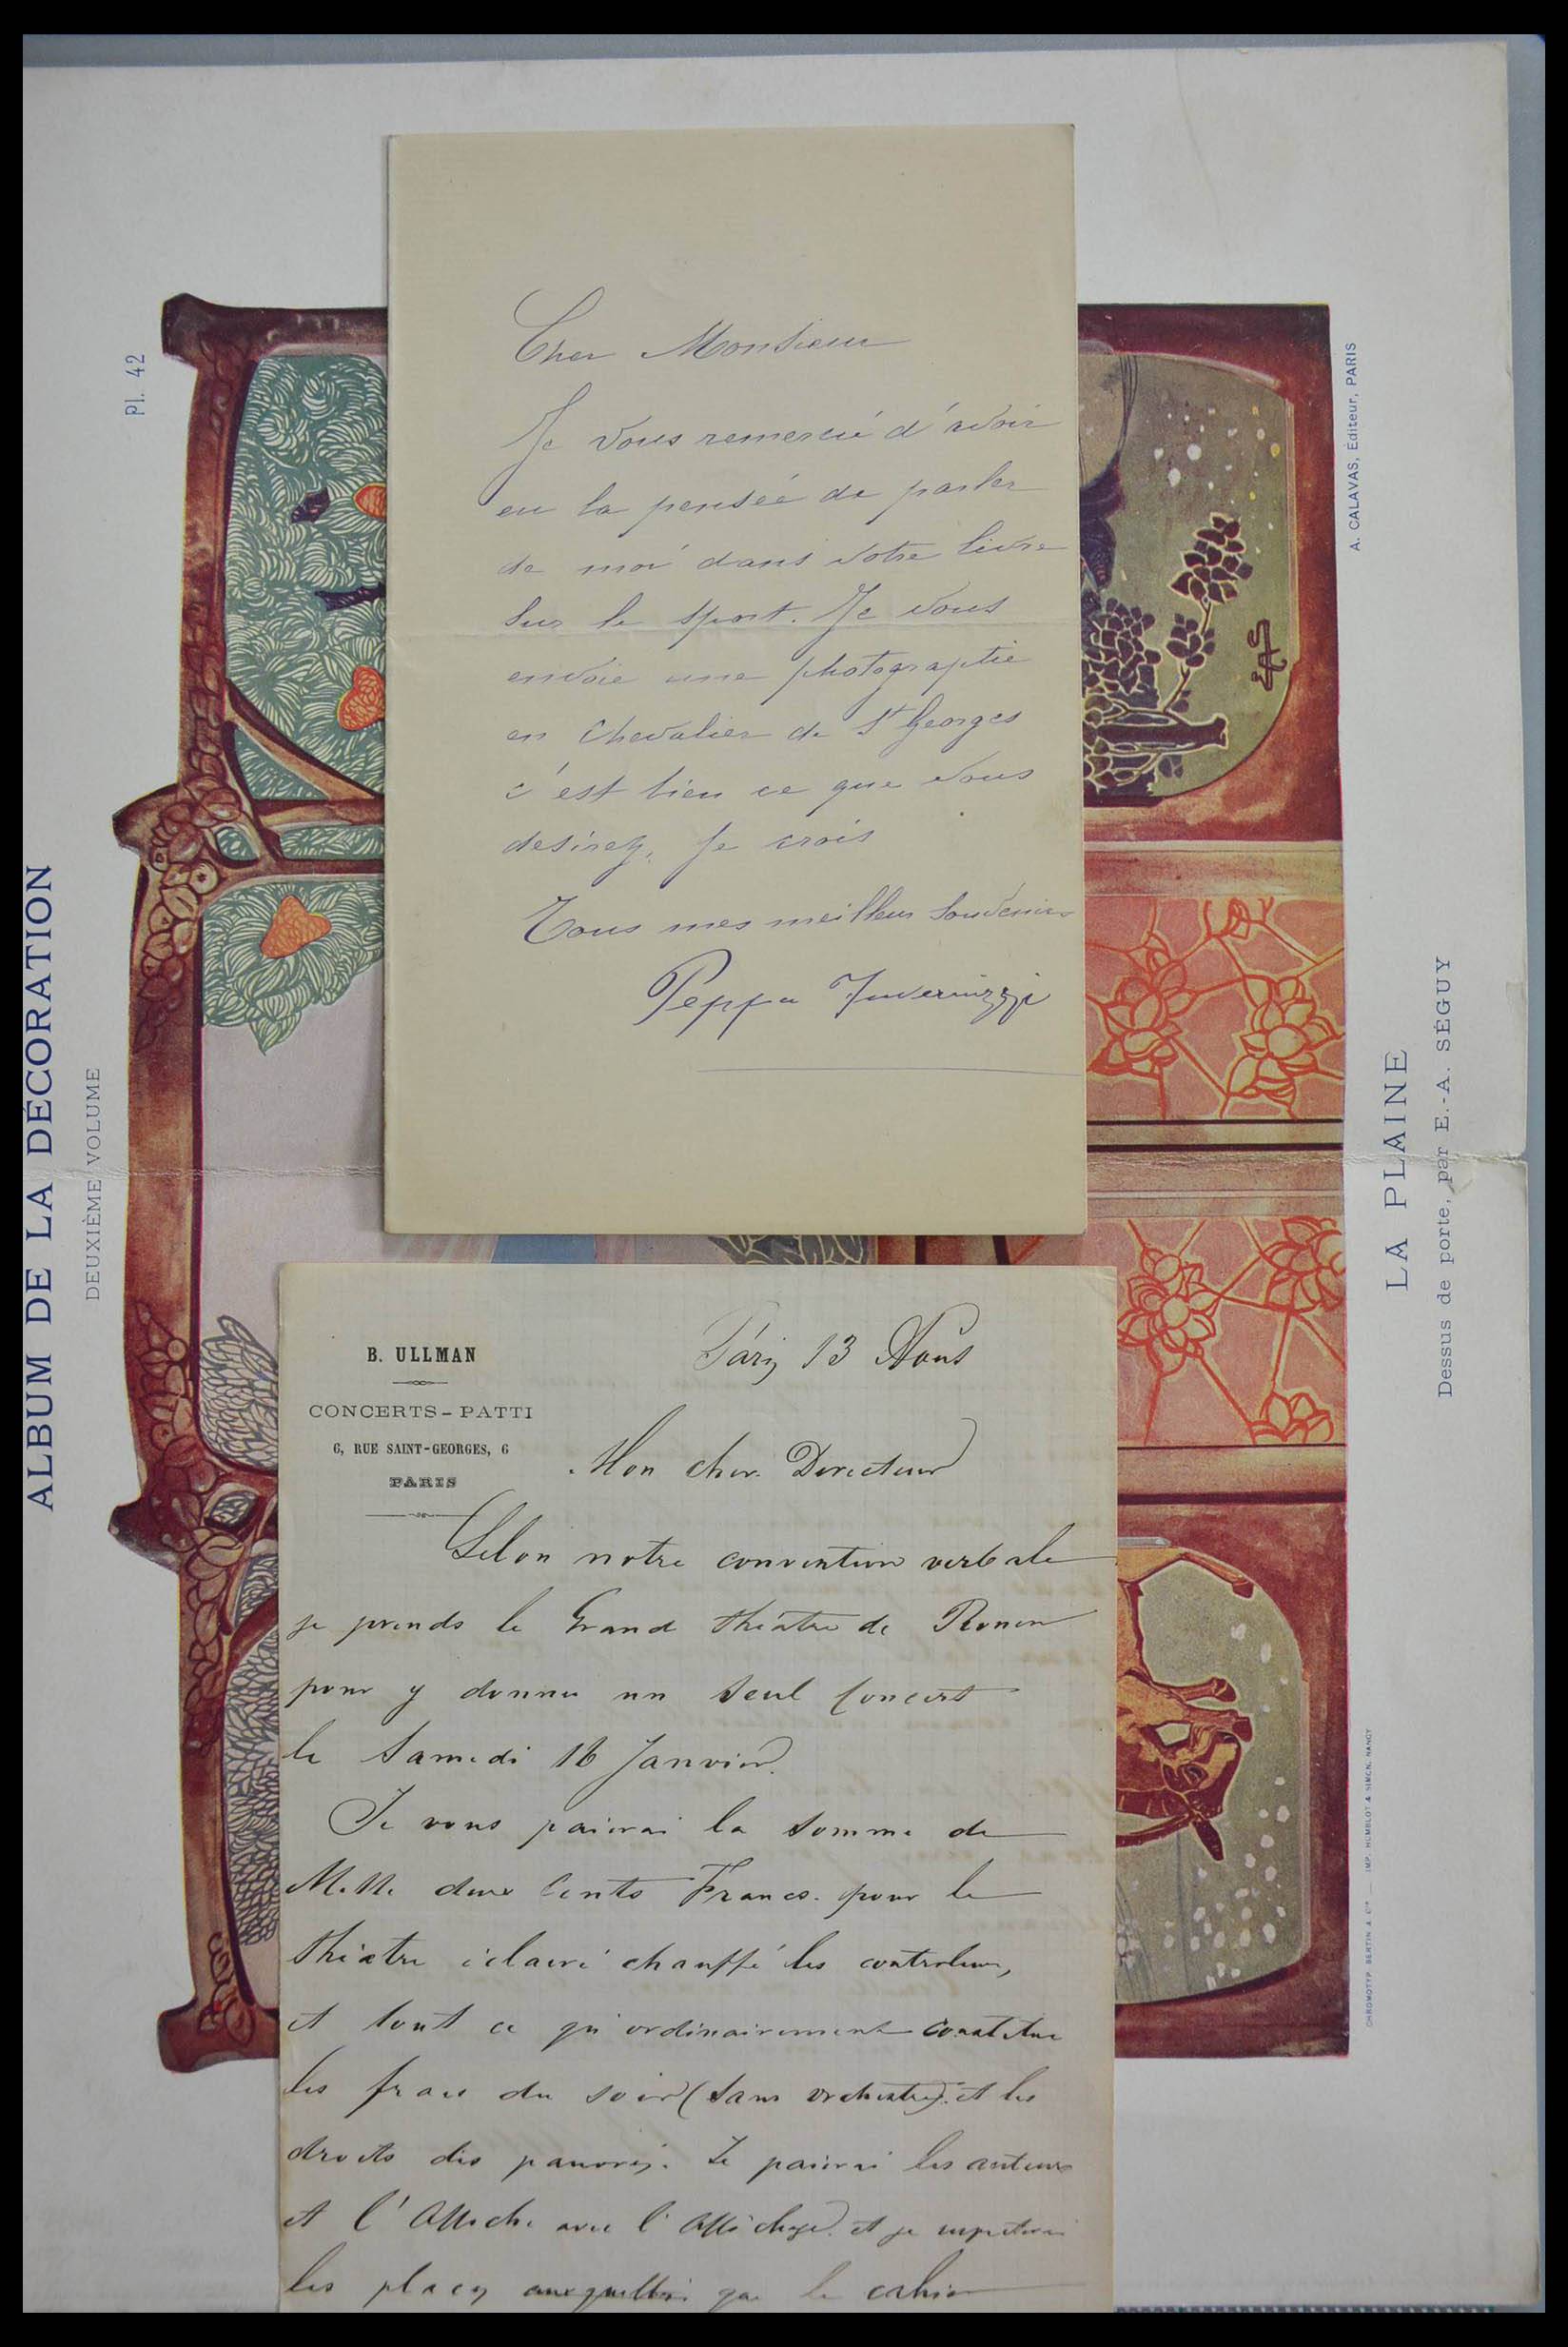 ALBUM DE LA DÉCORATION
DEUXIÈME VOLUME
Pl. 42
Cher Monsieur
Je vous remercié d'avoir
eu la penséé de parler
de moi dans votre livre
sur le sport. Je vous
envoie une photographie
en Chevalier de St Georges
c'est bien ce que vous
desirez, je crois
Tous mes meilleurs souvenirs
Peppa Invernizzi
B. ULLMAN
CONCERTS-PATTI
6, RUE SAINT-GEORGES, 6
PARIS
Paris 13 Aout
Mon cher Directeur
Selon notre convention verbale
je prends le Grand théatre de Rouen
pour y donner un seul Concert
le Samedi 16 Janvier.
Je vous paierai la somme de
Mille deux Cents Francs. pour le
théatre éclairé chauffé les controleurs,
et tout ce qui ordinairement constitue
les frais du soir (sans orchestre). et les
droits des pauvres. Je paierai les auteurs
et l'Affiche avec l'Affichage. et je
les places que le cahier
A. CALAVAS, Éditeur, PARIS
LA PLAINE
Dessus de porte, par E.-A. SÉGUY
CHROMOTYP. BERTIN & Cie — IMP. HUMBLOT & SIMON, NANCY